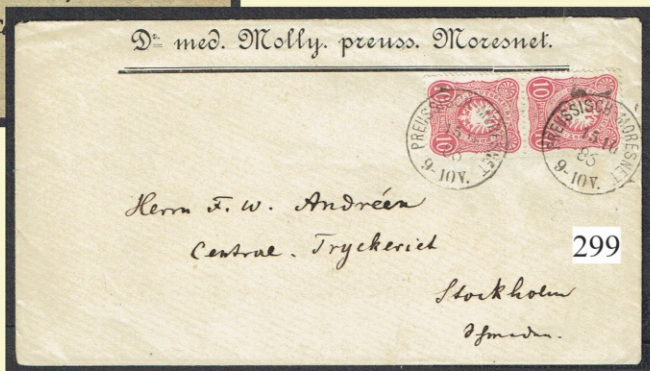 Dr. med. Molly. preuss. Moresnet.
10 10
PREUSSISCH-MORESNET
9-10V.
PREUSSISCH-MORESNET
9-10V.
Herrn F. W. Andréen
Central. Tryckeriet
299
Stockholm
Schweden.